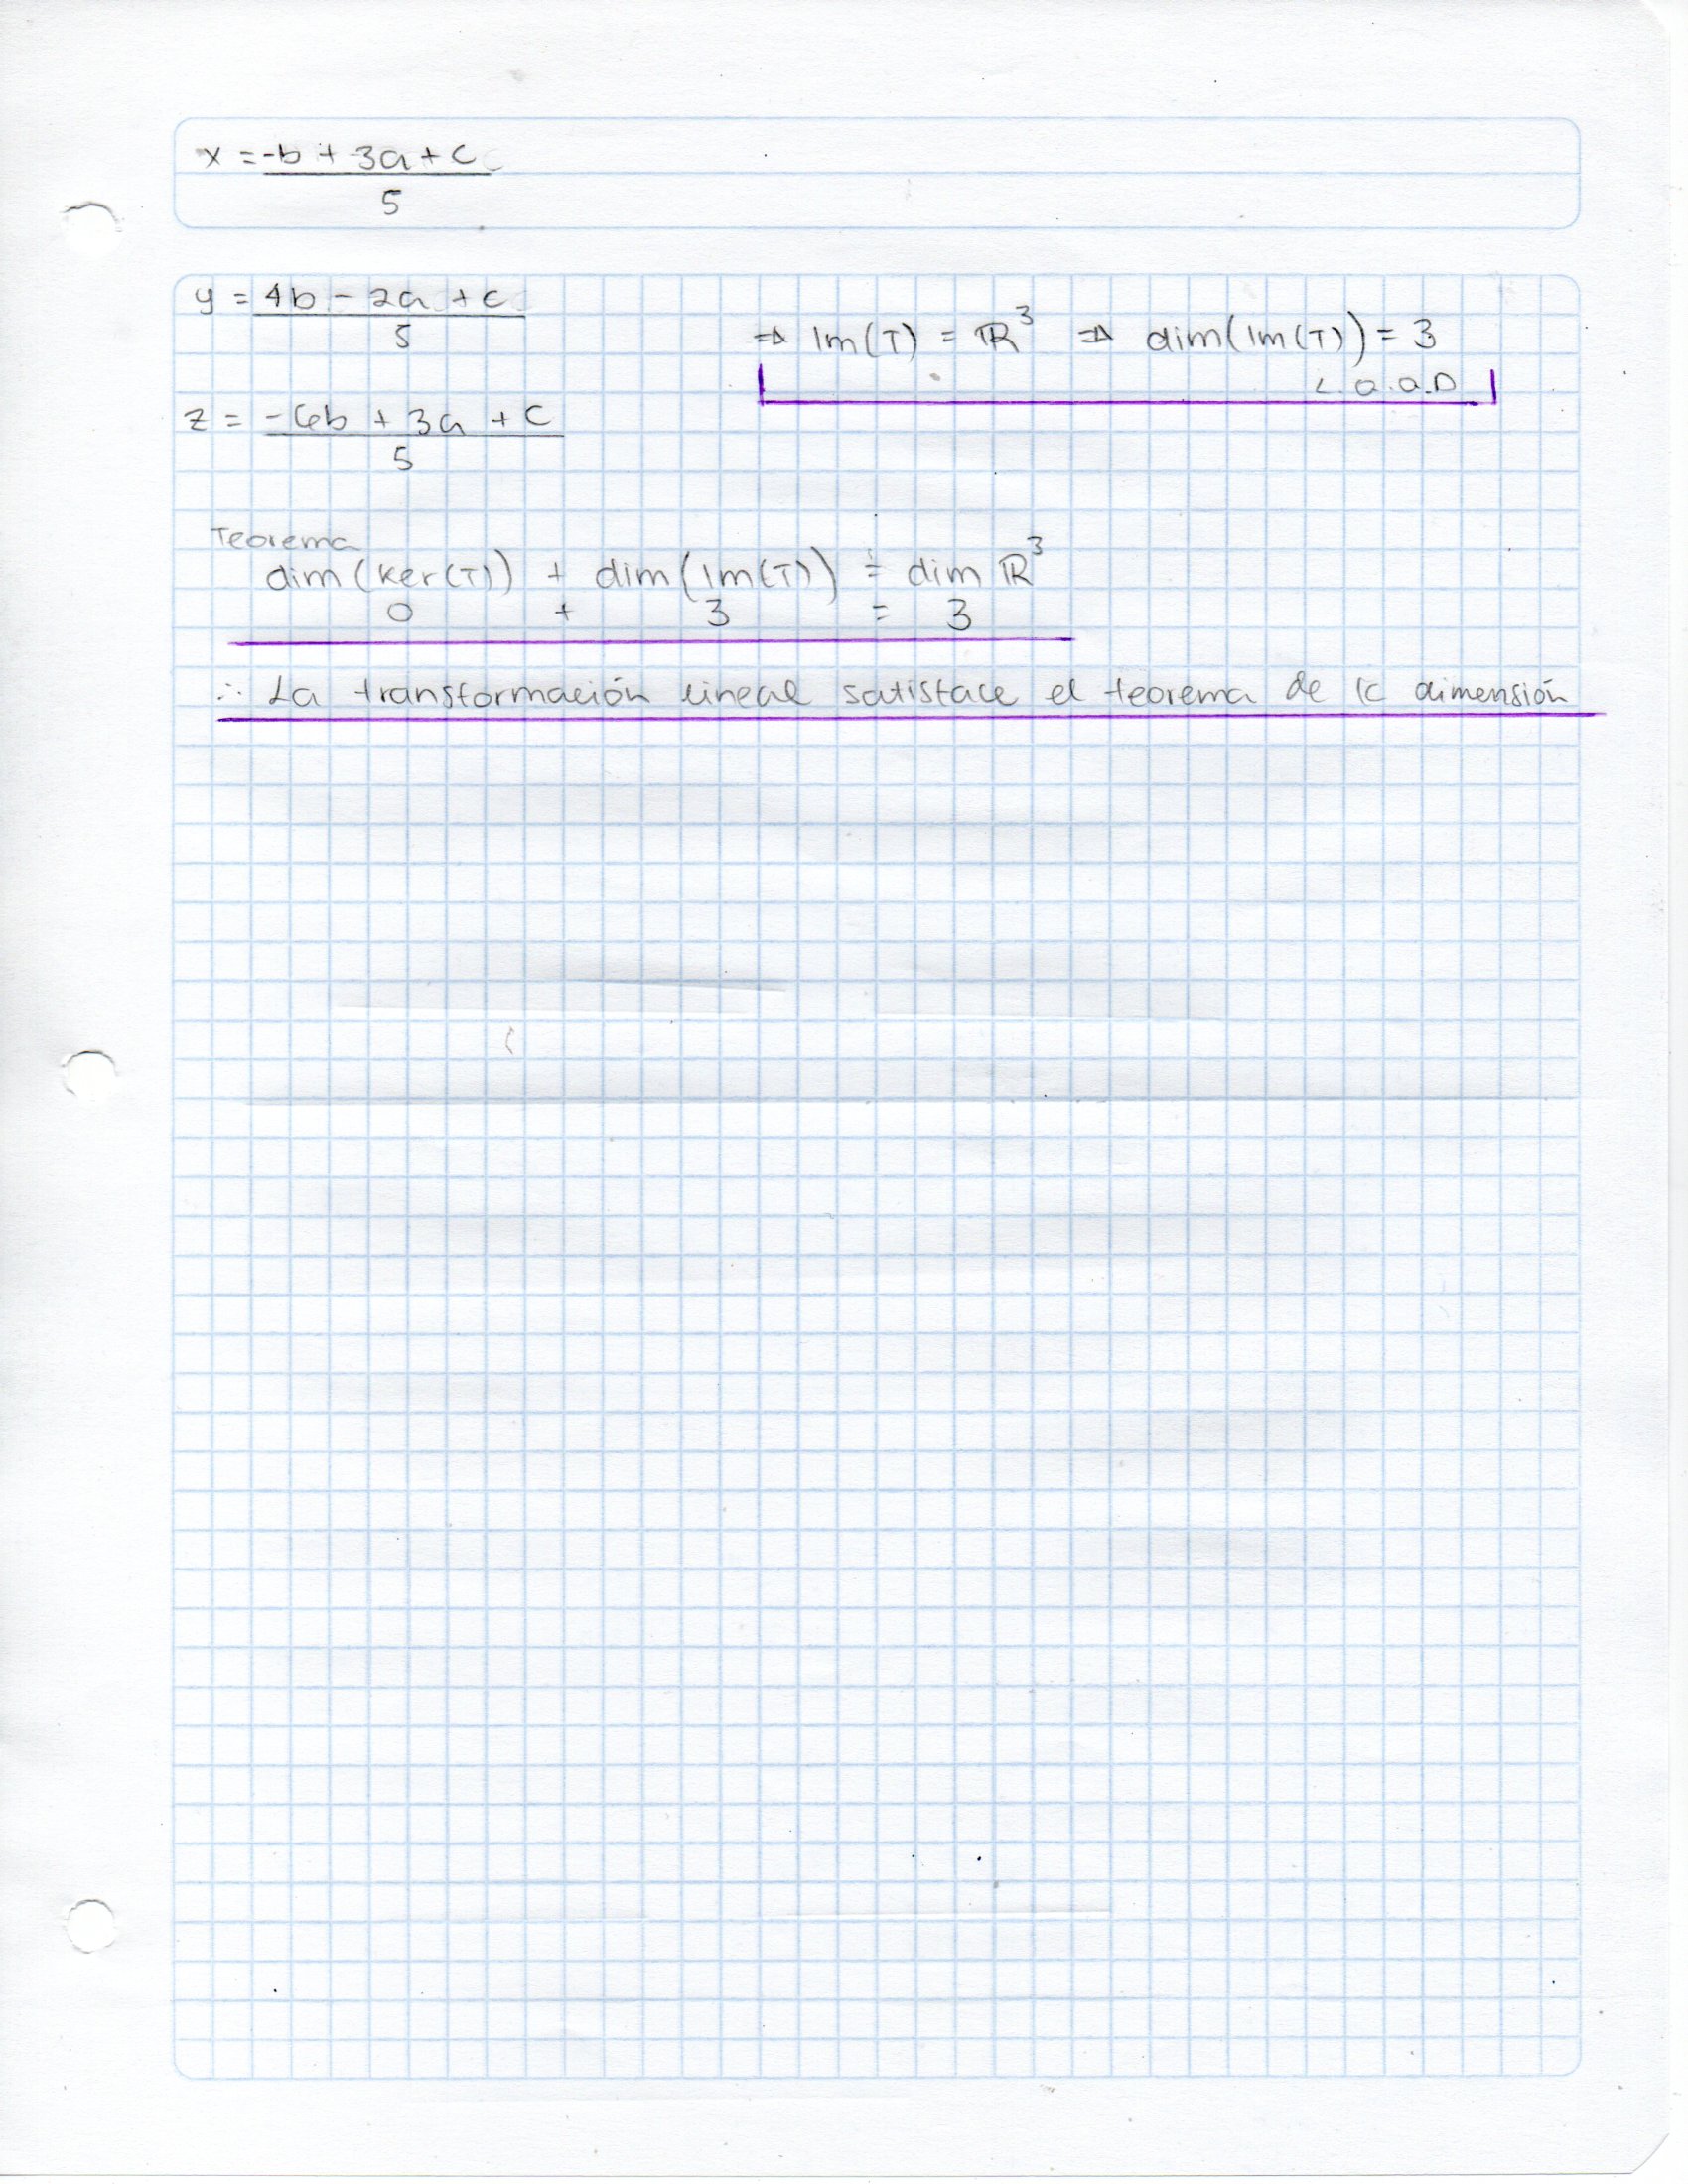 x = -b + 3a + c
5
y = 4b - 2a + c
5
⇒ Im(T) = ℝ³ ⇒ dim(Im(T)) = 3
L.Q.Q.D
z = -6b + 3a + c
5
Teorema
dim(Ker(T)) + dim(Im(T)) = dim ℝ³
0 + 3 = 3
∴ La transformación lineal satisface el teorema de la dimensión